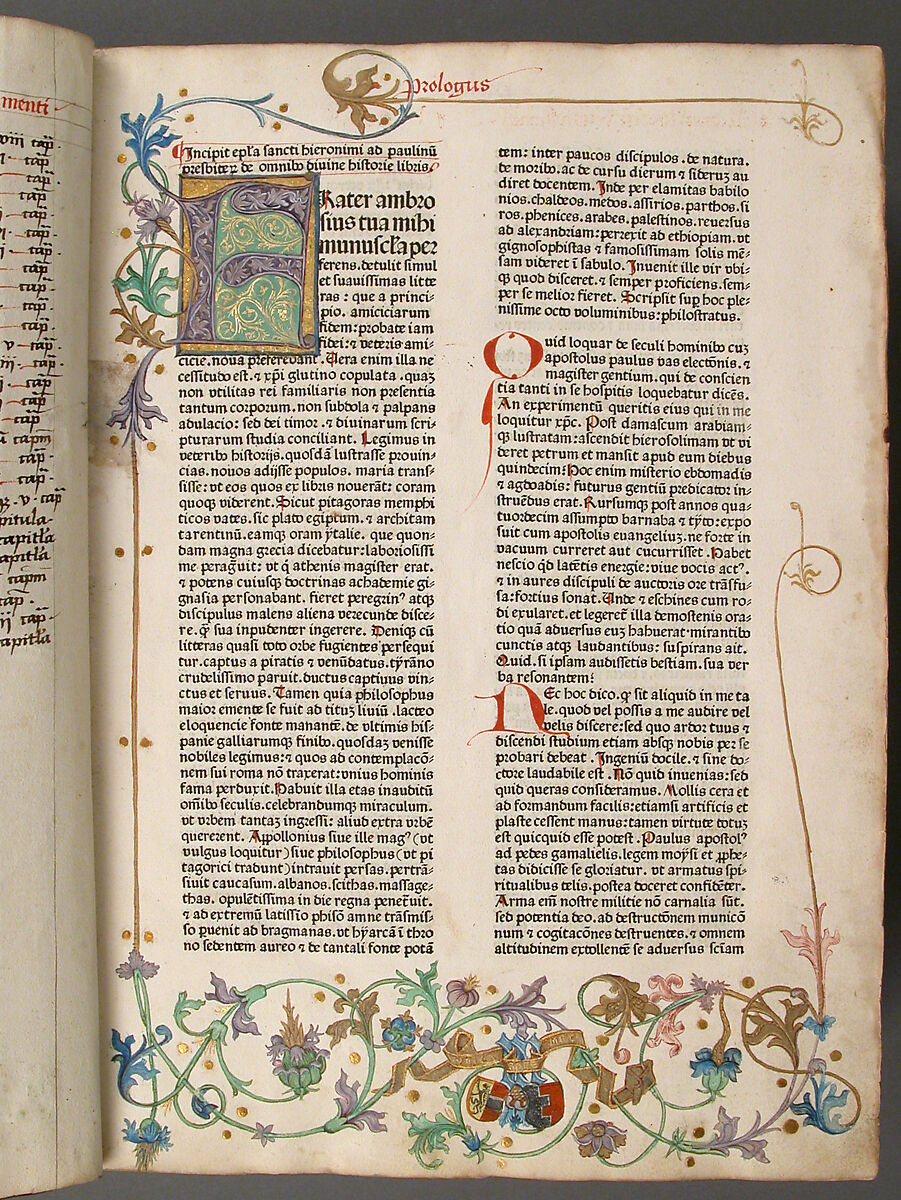 menti
Prologus
viii cap̄.
cap̄.
cap̄.
cap̄
cap̄.
cap̄.
cap̄.
cap̄.
cap̄.
cap̄.
v cap̄.
cap̄.
cap̄.
cap̄
cap̄
capm̄
cap̄.
cap̄.
v. cap̄
capitula
capitl̄a
capitl̄a
capm̄
cap̄.
cap̄.
capitl̄a
Incipit epl̄a sancti hieronimi ad paulinū
presbiterꝝ de omnibꝰ diuine historie libris.
Frater ambro
sius tua mihi
munuscl̄a per
ferens. detulit simul
et suauissimas litte
ras : que a princi-
pio. amiciciarum
fidem: probate iam
fidei: ⁊ veteris ami-
cicie. noua preferebant. Uera enim illa ne
cessitudo est. ⁊ xp̄i glutino copulata. quaꝫ
non vtilitas rei familiaris non presentia
tantum corporum. non subdola ⁊ palpans
adulacio: sed dei timor. ⁊ diuinarum scri
pturarum studia conciliant. Legimus in
veteribꝰ historijs. quosdā lustrasse prouin
cias. nouos adijsse populos. maria trans-
sisse: vt eos quos ex libris nouerāt: coram
quoqꝫ viderent. Sicut pitagoras memphi
ticos vates. sic plato egiptum. ⁊ architam
tarentinū. eamqꝫ oram ytalie. que quon-
dam magna grecia dicebatur: laboriosissi
me peragͣuit: vt qͥ athenis magister erat.
⁊ potens cuiusqꝫ doctrinas achademie gi-
gnasia personabant. fieret peregrinꝰ atqꝫ
discipulus malens aliena verecunde disce-
re. qͣꝫ sua inpudenter ingerere. Deniqꝫ cū
litteras quasi toto orbe fugientes persequi
tur. captus a piratis ⁊ venūdatus. tyrāno
crudelissimo paruit. ductus captiuus vin-
ctus et seruus. Tamen quia philosophus
maior emente se fuit ad tituꝫ liuiū. lacteo
eloquencie fonte manantē. de vltimis his-
panie galliarumqꝫ finibꝰ. quosdaꝫ venisse
nobiles legimus: ⁊ quos ad contemplacō-
nem sui roma nō traxerat: vnius hominis
fama perduxit. Habuit illa etas inauditū
om̄ibꝰ seculis. celebrandumqꝫ miraculum.
vt vrbem tantaꝫ ingressi: aliud extra vrbē
quererent. Appollonius siue ille magꝰ (vt
vulgus loquitur) siue philosophus (vt pi
tagorici tradunt) intrauit persas. pertrā-
siuit caucasum. albanos. scithas. massage-
thas. opulētissima in die regna penetͣuit.
⁊ ad extremū latissīo phisō amne trāsmis-
so ꝑuenit ad bragmanas. vt hyarcā ī thro
no sedentem aureo ⁊ de tantali fonte potā
tem: inter paucos discipulos. de natura.
de moribꝰ. ac de cursu dierum ⁊ siderꝝ au
diret docentem. Inde per elamitas babilo
nios. chaldeos. medos. assirios. parthos. si
ros. phenices. arabes. palestinos. reuersus
ad alexandriam: perrexit ad ethiopiam. vt
gignosophistas ⁊ famosissimam solis mē-
sam videret ī sabulo. Inuenit ille vir vbi-
qꝫ quod disceret. ⁊ semper proficiens. sem-
per se melior fieret. Scripsit suꝑ hoc ple-
nissime octo voluminibus: philostratus.
Quid loquar de seculi hominibꝰ cuꝫ
apostolus paulus vas electōnis. ⁊
magister gentium. qui de conscien
tia tanti in se hospitis loquebatur dicēs.
An experimentū queritis eius qui in me
loquitur xp̄c. Post damascum arabiam-
qꝫ lustratam: ascendit hierosolimam vt vi
deret petrum et mansit apud eum diebus
quindecim: Hoc enim misterio ebdomadis
⁊ agdoadis: futurus gentiū predicatoꝛ in-
struēdus erat. Rursumqꝫ post annos qua-
tuoꝛdecim assumpto barnaba ⁊ tyto: expo
suit cum apostolis euangeliuꝫ. ne forte in
vacuum curreret aut cucurrisset. Habet
nescio qͥd latētis energie: viue vocis actꝰ.
⁊ in aures discipuli de auctoris ore trāsfu-
sa: fortius sonat. Unde ⁊ eschines cum ro-
di exularet. et legeretͬ illa demostenis ora-
tio quā aduersus euꝫ habuerat: mirantibꝰ
cunctis atqꝫ laudantibus: suspirans ait.
Quid. si ipsam audissetis bestiam. sua ver
ba resonantem:
Nec hoc dico. qͣꝫ sit aliquid in me ta
le. quod vel possis a me audire vel
velis discere: sed quo ardoꝛ tuus ⁊
discendi studium etiam absqꝫ nobis per se
probari debeat. Ingeniū docile. ⁊ sine do-
ctore laudabile est. Nō quid inuenias: sed
quid queras consideramus. Mollis cera et
ad formandum facilis: etiamsi artificis et
plaste cessent manus: tamen virtute totuꝫ
est quicquid esse potest. Paulus apostolꝰ
ad pedes gamalielis. legem moysi et ꝓphe-
tas didicisse se gloriatur. vt armatus spi-
ritualibus telis. postea doceret confidēter.
Arma em̄ nostre militie nō carnalia sūt.
sed potentia deo. ad destructōnem municō
num ⁊ cogitacōnes destruentes. ⁊ omnem
altitudinem extollentē se aduersus sciam